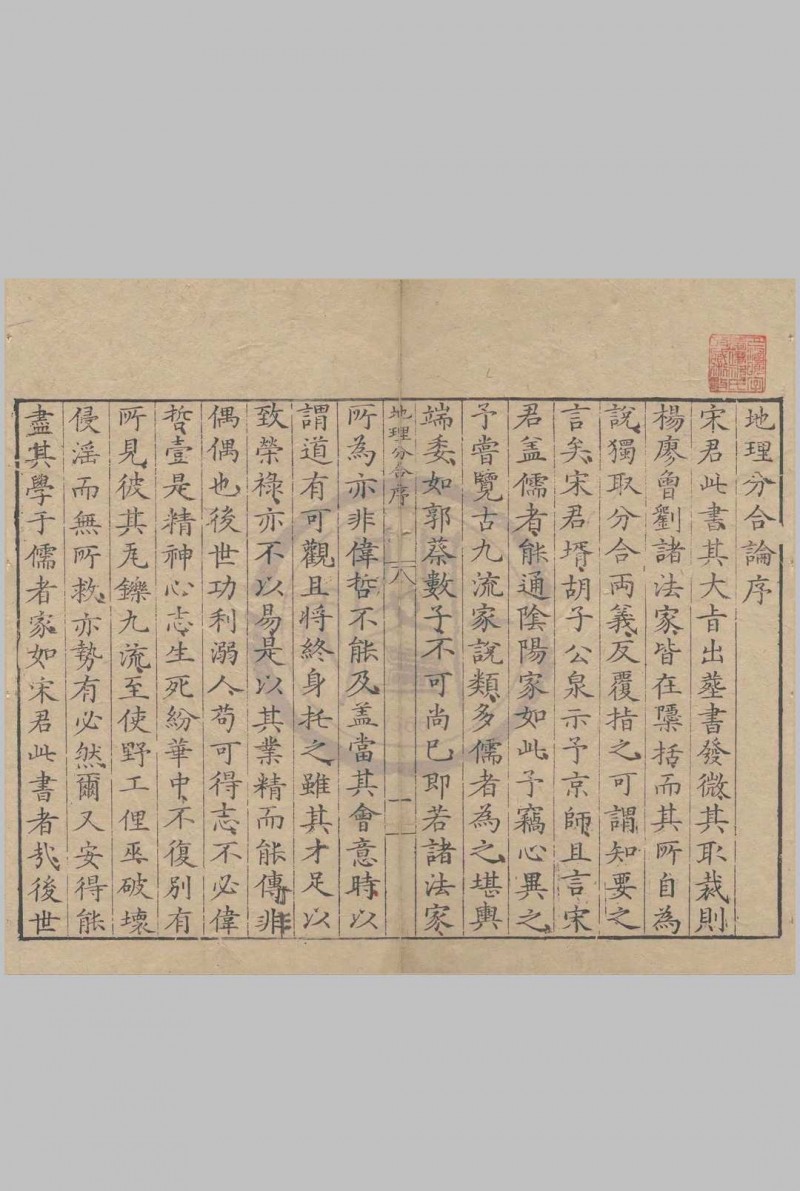 地理分合論序
宋君此書其大㫖出塟書發微其取裁則
楊廖曾劉諸法家皆在檃括而其所自為
說獨取分合兩義反覆指之可謂知要之
言矣宋君壻胡子公泉示予京師且言宋
君盖儒者能通陰陽家如此予竊心異之
予嘗覽古九流家說類多儒者為之堪輿
端委如郭蔡數子不可尚已即若諸法家
地理分合序
一
所為亦非偉哲不能及盖當其會意時以
謂道有可觀且將終身托之雖其才足以
致榮祿亦不以易是以其業精而能傳非
偶偶也後世功利溺人苟可得志不必偉
哲壹是精神心志生死紛華中不復別有
所見彼其瓦鑠九流至使野工俚巫破壞
侵淫而無所救亦勢有必然爾又安得能
盡其學于儒者家如宋君此書者㢤後世